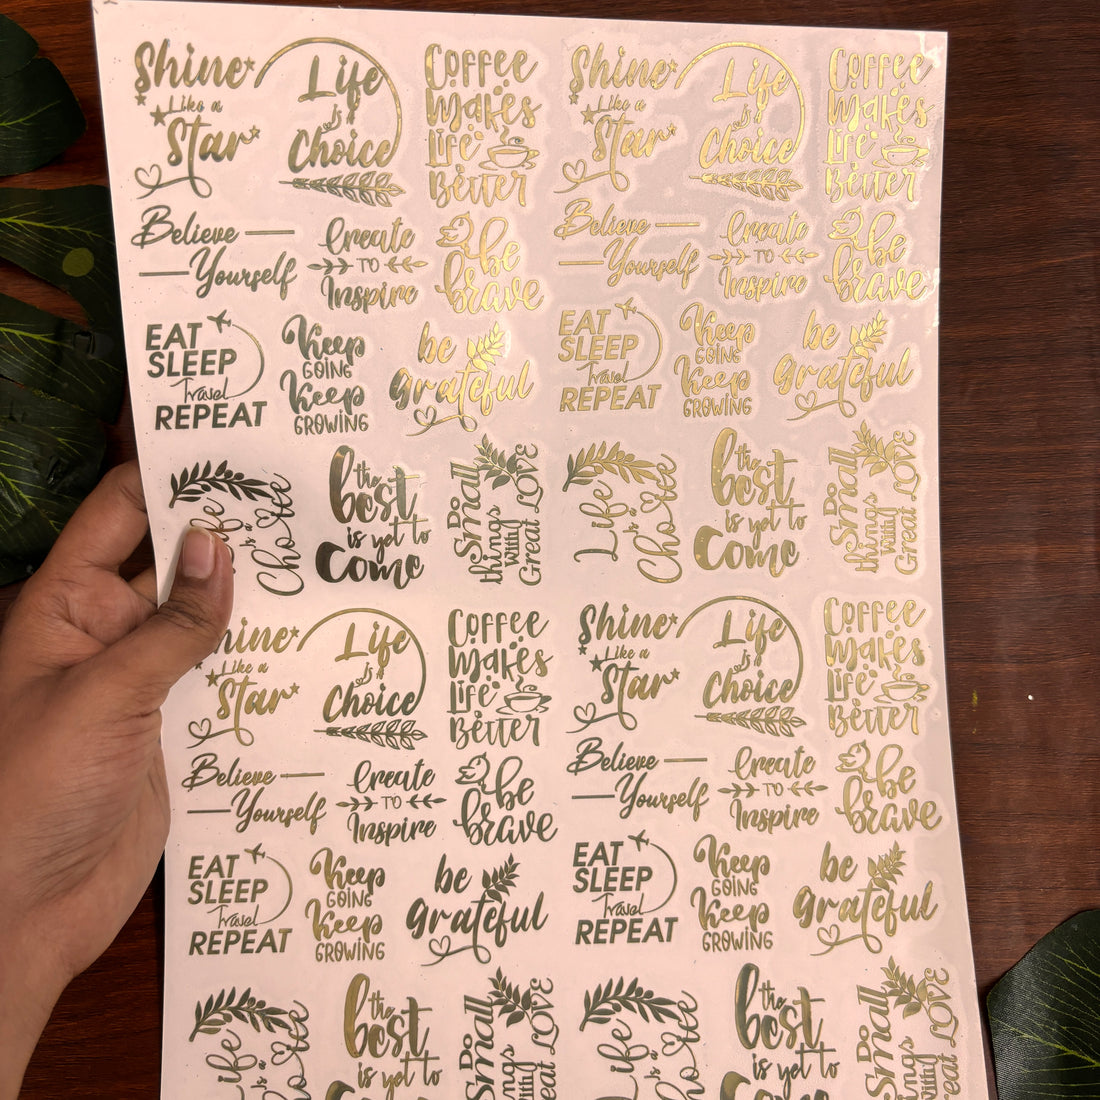 Shine
Like a
Star
Life
is a
Choice
Coffee
Makes
Life
Better
Shine
Like a
Star
Life
is a
Choice
Coffee
Makes
Life
Better
Believe
Yourself
Create
TO
Inspire
be
brave
Believe
Yourself
Create
TO
Inspire
be
brave
EAT
SLEEP
Travel
REPEAT
Keep
GOING
Keep
GROWING
be
grateful
EAT
SLEEP
Travel
REPEAT
Keep
GOING
Keep
GROWING
be
grateful
Life
is a
Choice
the
best
is yet to
Come
Do
Small
things
With
Great LOVE
Life
is a
Choice
the
best
is yet to
Come
Do
Small
things
With
Great LOVE
hine
Like a
Star
Life
is a
Choice
Coffee
Makes
Life
Better
Shine
Like a
Star
Life
is a
Choice
Coffee
Makes
Life
Better
Believe
Yourself
Create
TO
Inspire
be
brave
Believe
Yourself
Create
TO
Inspire
be
brave
EAT
SLEEP
Travel
REPEAT
Keep
GOING
Keep
GROWING
be
grateful
EAT
SLEEP
Travel
REPEAT
Keep
GOING
Keep
GROWING
be
grateful
Life
is a
Choice
the
best
is yet to
Do
Small
things
With
Great LOVE
Life
is a
Choice
the
best
is yet to
Do
Small
things
With
Great LOVE